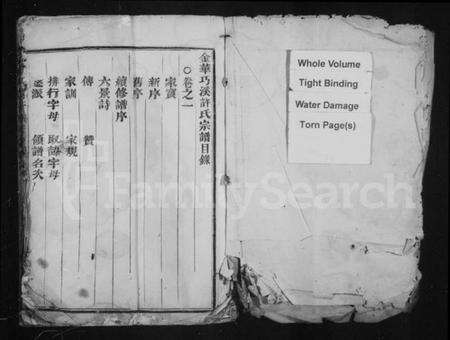 金華巧溪許氏宗譜目錄
○卷之一
家寶
新序
舊序
續修譜序
六景詩
傳 贊
家訓 家規
排行字母 字母
派 領譜名次
Whole Volume
Tight Binding
Water Damage
Torn Page(s)
FamilySearch